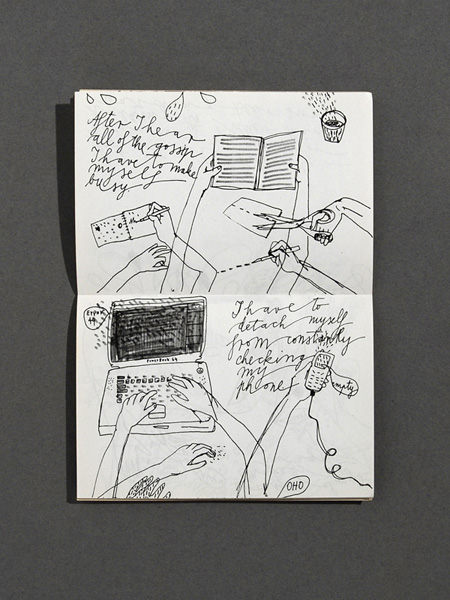 After I hear
all of the gossip
I have to make
myself
busy
I have to
detach myself
from constantly
checking
my
phone
empty
OHO